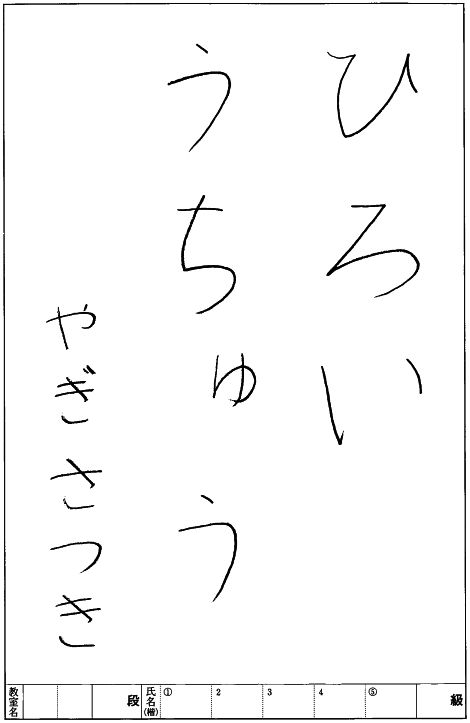 ひろい
うちゅう
やぎさつき
教室名 段 氏名(楷) ① 2 3 4 ⑤ 級